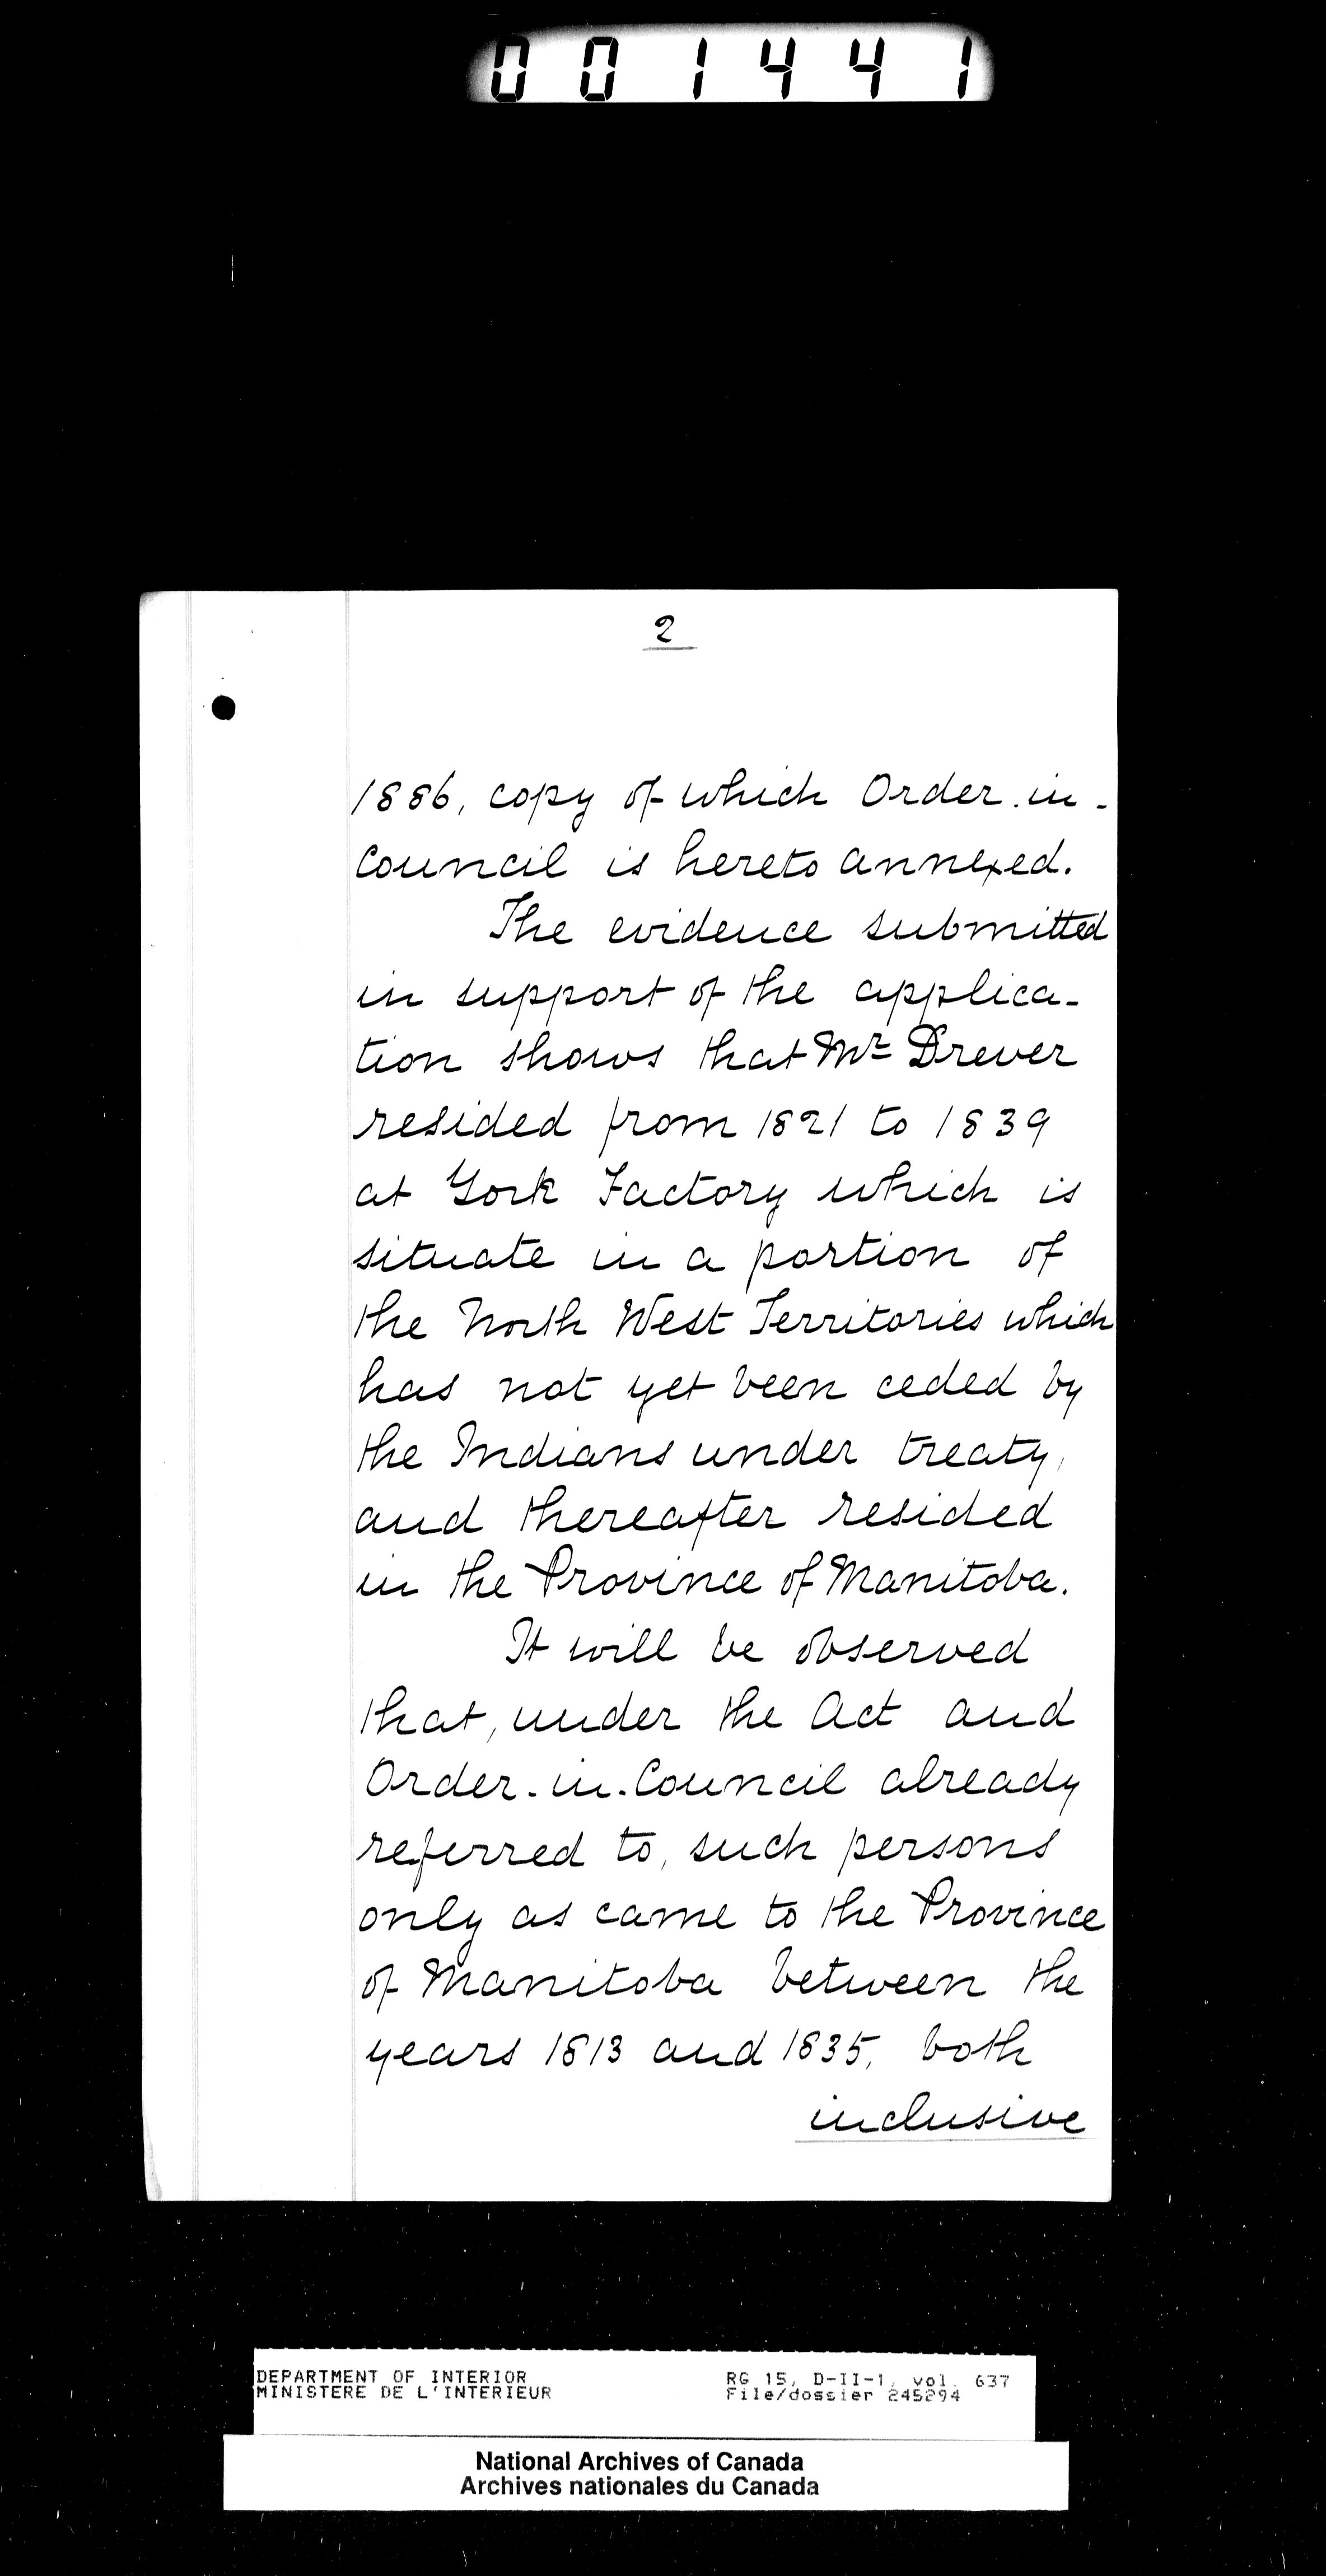 001441
2
1886, copy of which Order-in-
Council is hereto annexed.
The evidence submitted
in support of the applica-
tion shows that Mr Drever
resided from 1821 to 1839
at York Factory which is
situate in a portion of
the North West Territories which
has not yet been ceded by
the Indians under treaty,
and thereafter resided
in the Province of Manitoba.
It will be observed
that, under the Act and
Order-in-Council already
referred to, such persons
only as came to the Province
of Manitoba between the
years 1813 and 1835, both
inclusive
DEPARTMENT OF INTERIOR
MINISTERE DE L'INTERIEUR
RG 15, D-II-1, vol. 637
File/dossier 245294
National Archives of Canada
Archives nationales du Canada